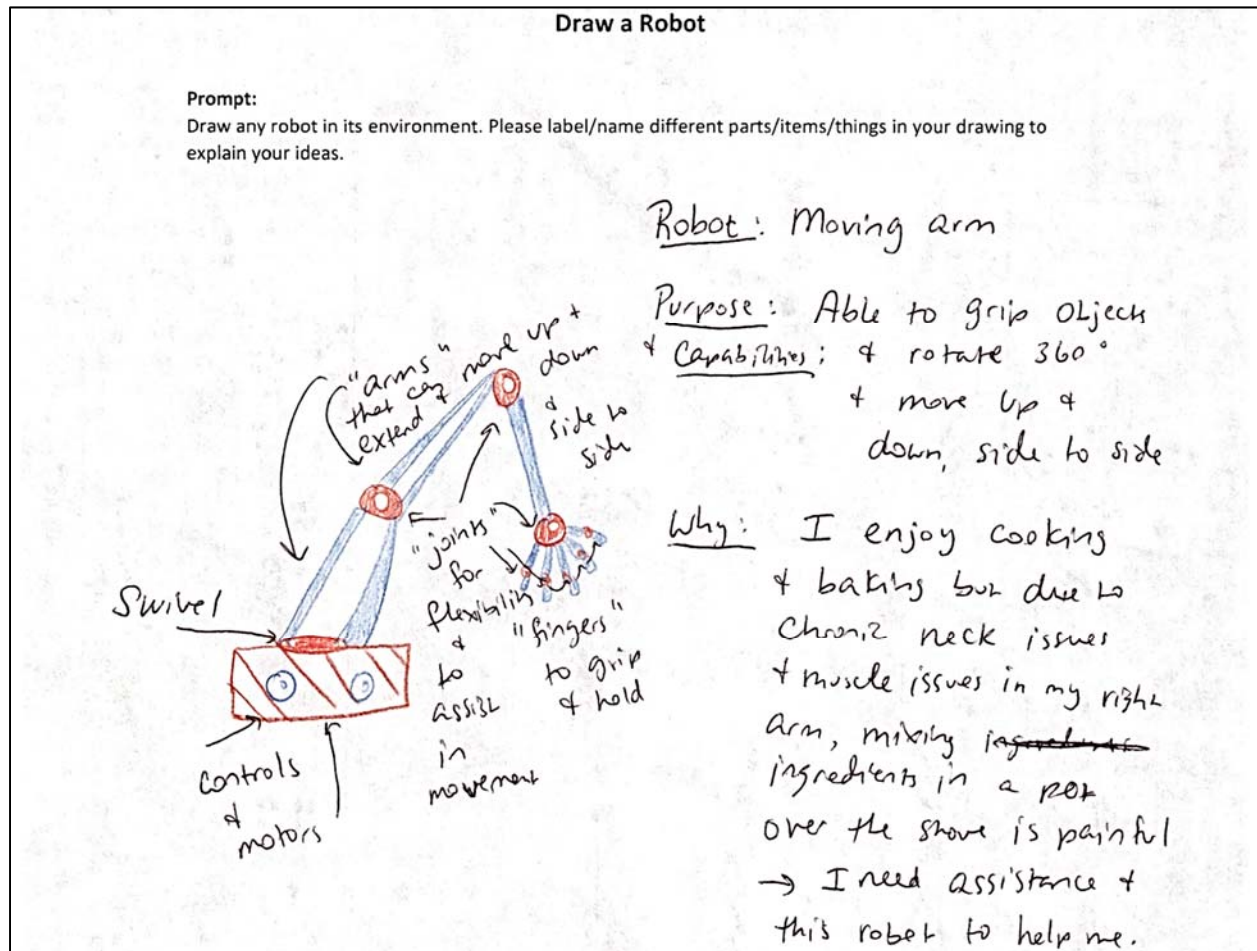 Draw a Robot
Prompt:
Draw any robot in its environment. Please label/name different parts/items/things in your drawing to
explain your ideas.
Robot: Moving arm
Purpose: Able to grip objects
& Capabilities: & rotate 360°
& move up &
down, side to side
Why: I enjoy cooking
& baking but due to
chronic neck issues
& muscle issues in my right
arm, mixing
ingredients in a pot
over the stove is painful
→ I need assistance &
this robot to help me.
"arms"
that can
extend & move up +
down
&
side to
side
"joints"
for
flexibility
&
to
assist
in
movement
"fingers"
to grip
& hold
Swivel
controls
&
motors